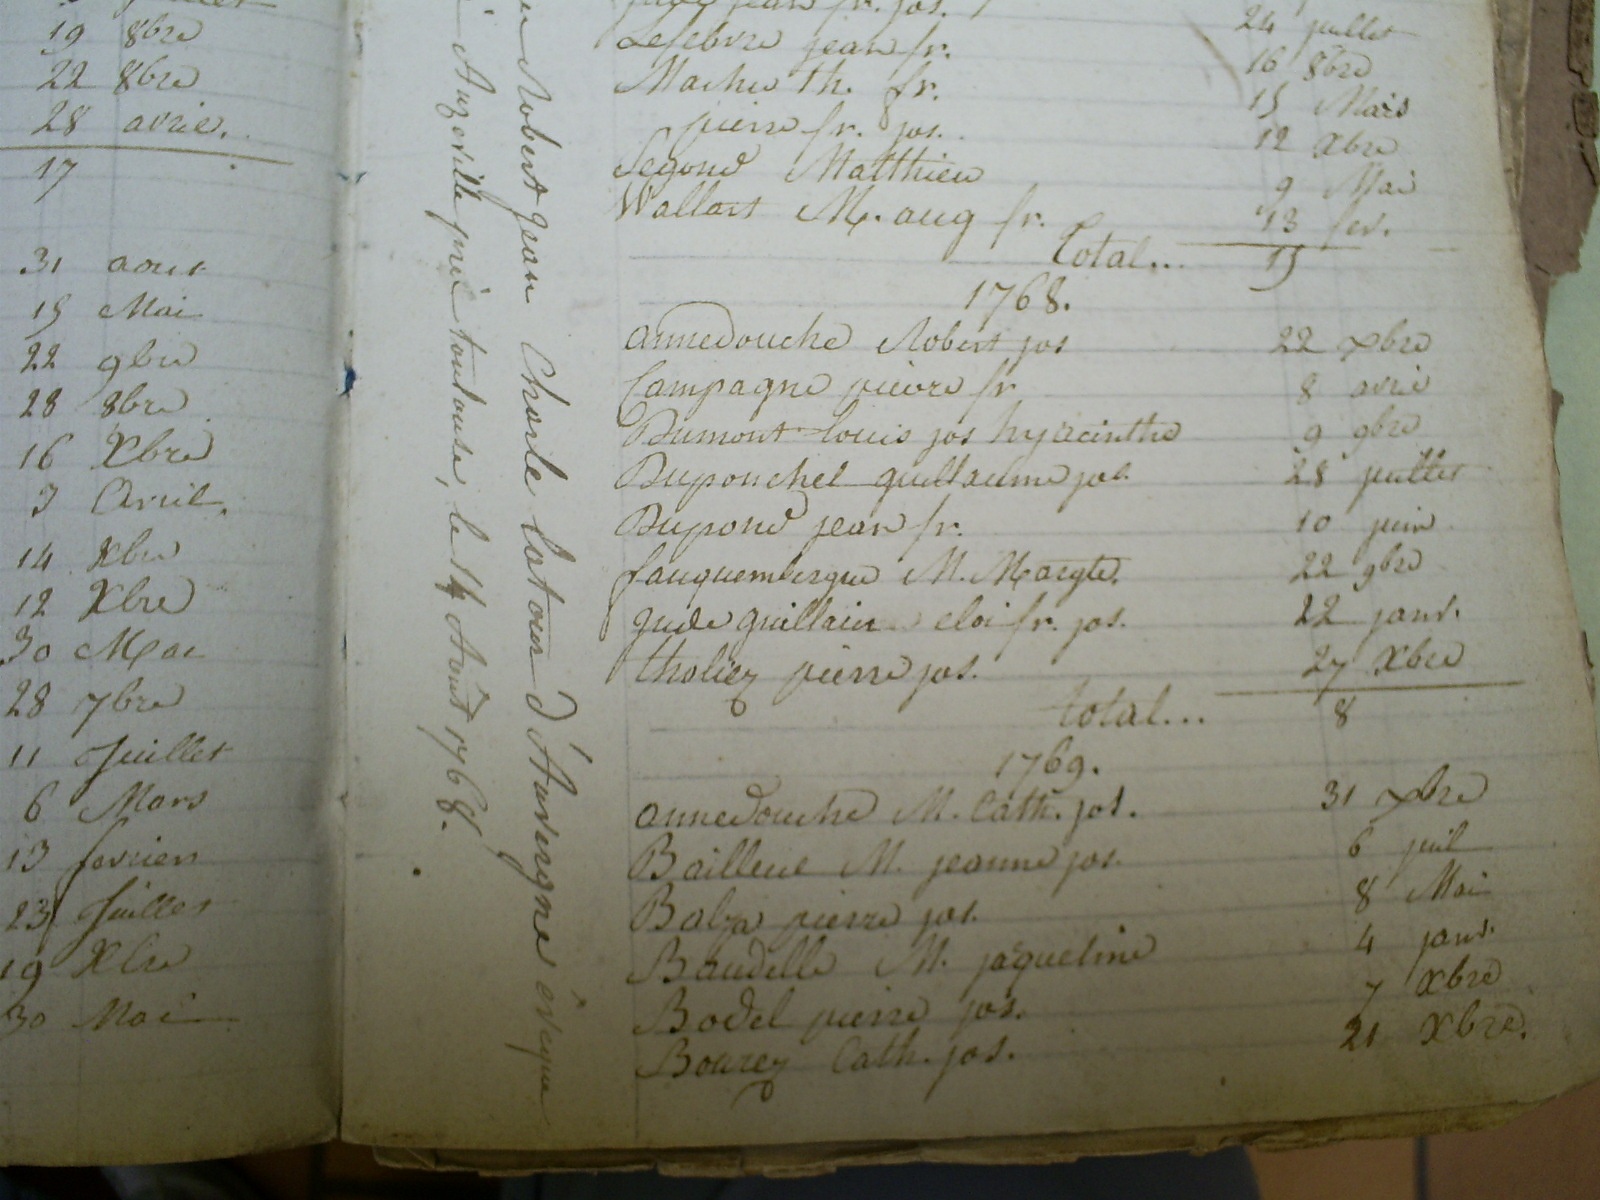 19 8bre
22 8bre
28 avril.
17
31 aout
15 Mai
22 9bre
28 8bre
16 Xbre
3 Avril.
14 Xbre
12 Xbre
30 Mai
28 7bre
11 Juillet
6 Mars
13 fevrier
23 Juillet
19 Xbre
30 Mai
Robert jean Charle Latour d'Auvergne évêque
Auzeville près toulouse, le 14 Août 1768.
24 juillet
Lefebvre jean fr. 16 8bre
Mathieu th. fr. 15 Mars
pierre fr. jos. 12 Xbre
Segond Matthieu 9 Mai
Wallart M. aug fr. 13 fev.
Total... 15
1768.
annedouche Robert jos 22 7bre
Campagne pierre fr 8 avril
Dumont louis jos hyacinthe 9 9bre
Duponchel guillaume jos. 28 juillet
Dupond jean fr. 10 juin
fauquembergue M. Margte. 22 9bre
guillain eloi fr. jos. 22 janv.
tholiez pierre jos. 27 Xbre
total... 8
1769.
annedouche M. Cath. jos. 31 7bre
Bailleue M. jeanne jos. 6 juil
Balza pierre jos. 8 Mai
Baudelle M. jaqueline 4 janv.
Bodel pierre jos. 7 Xbre
Bourey Cath. jos. 21 Xbre.